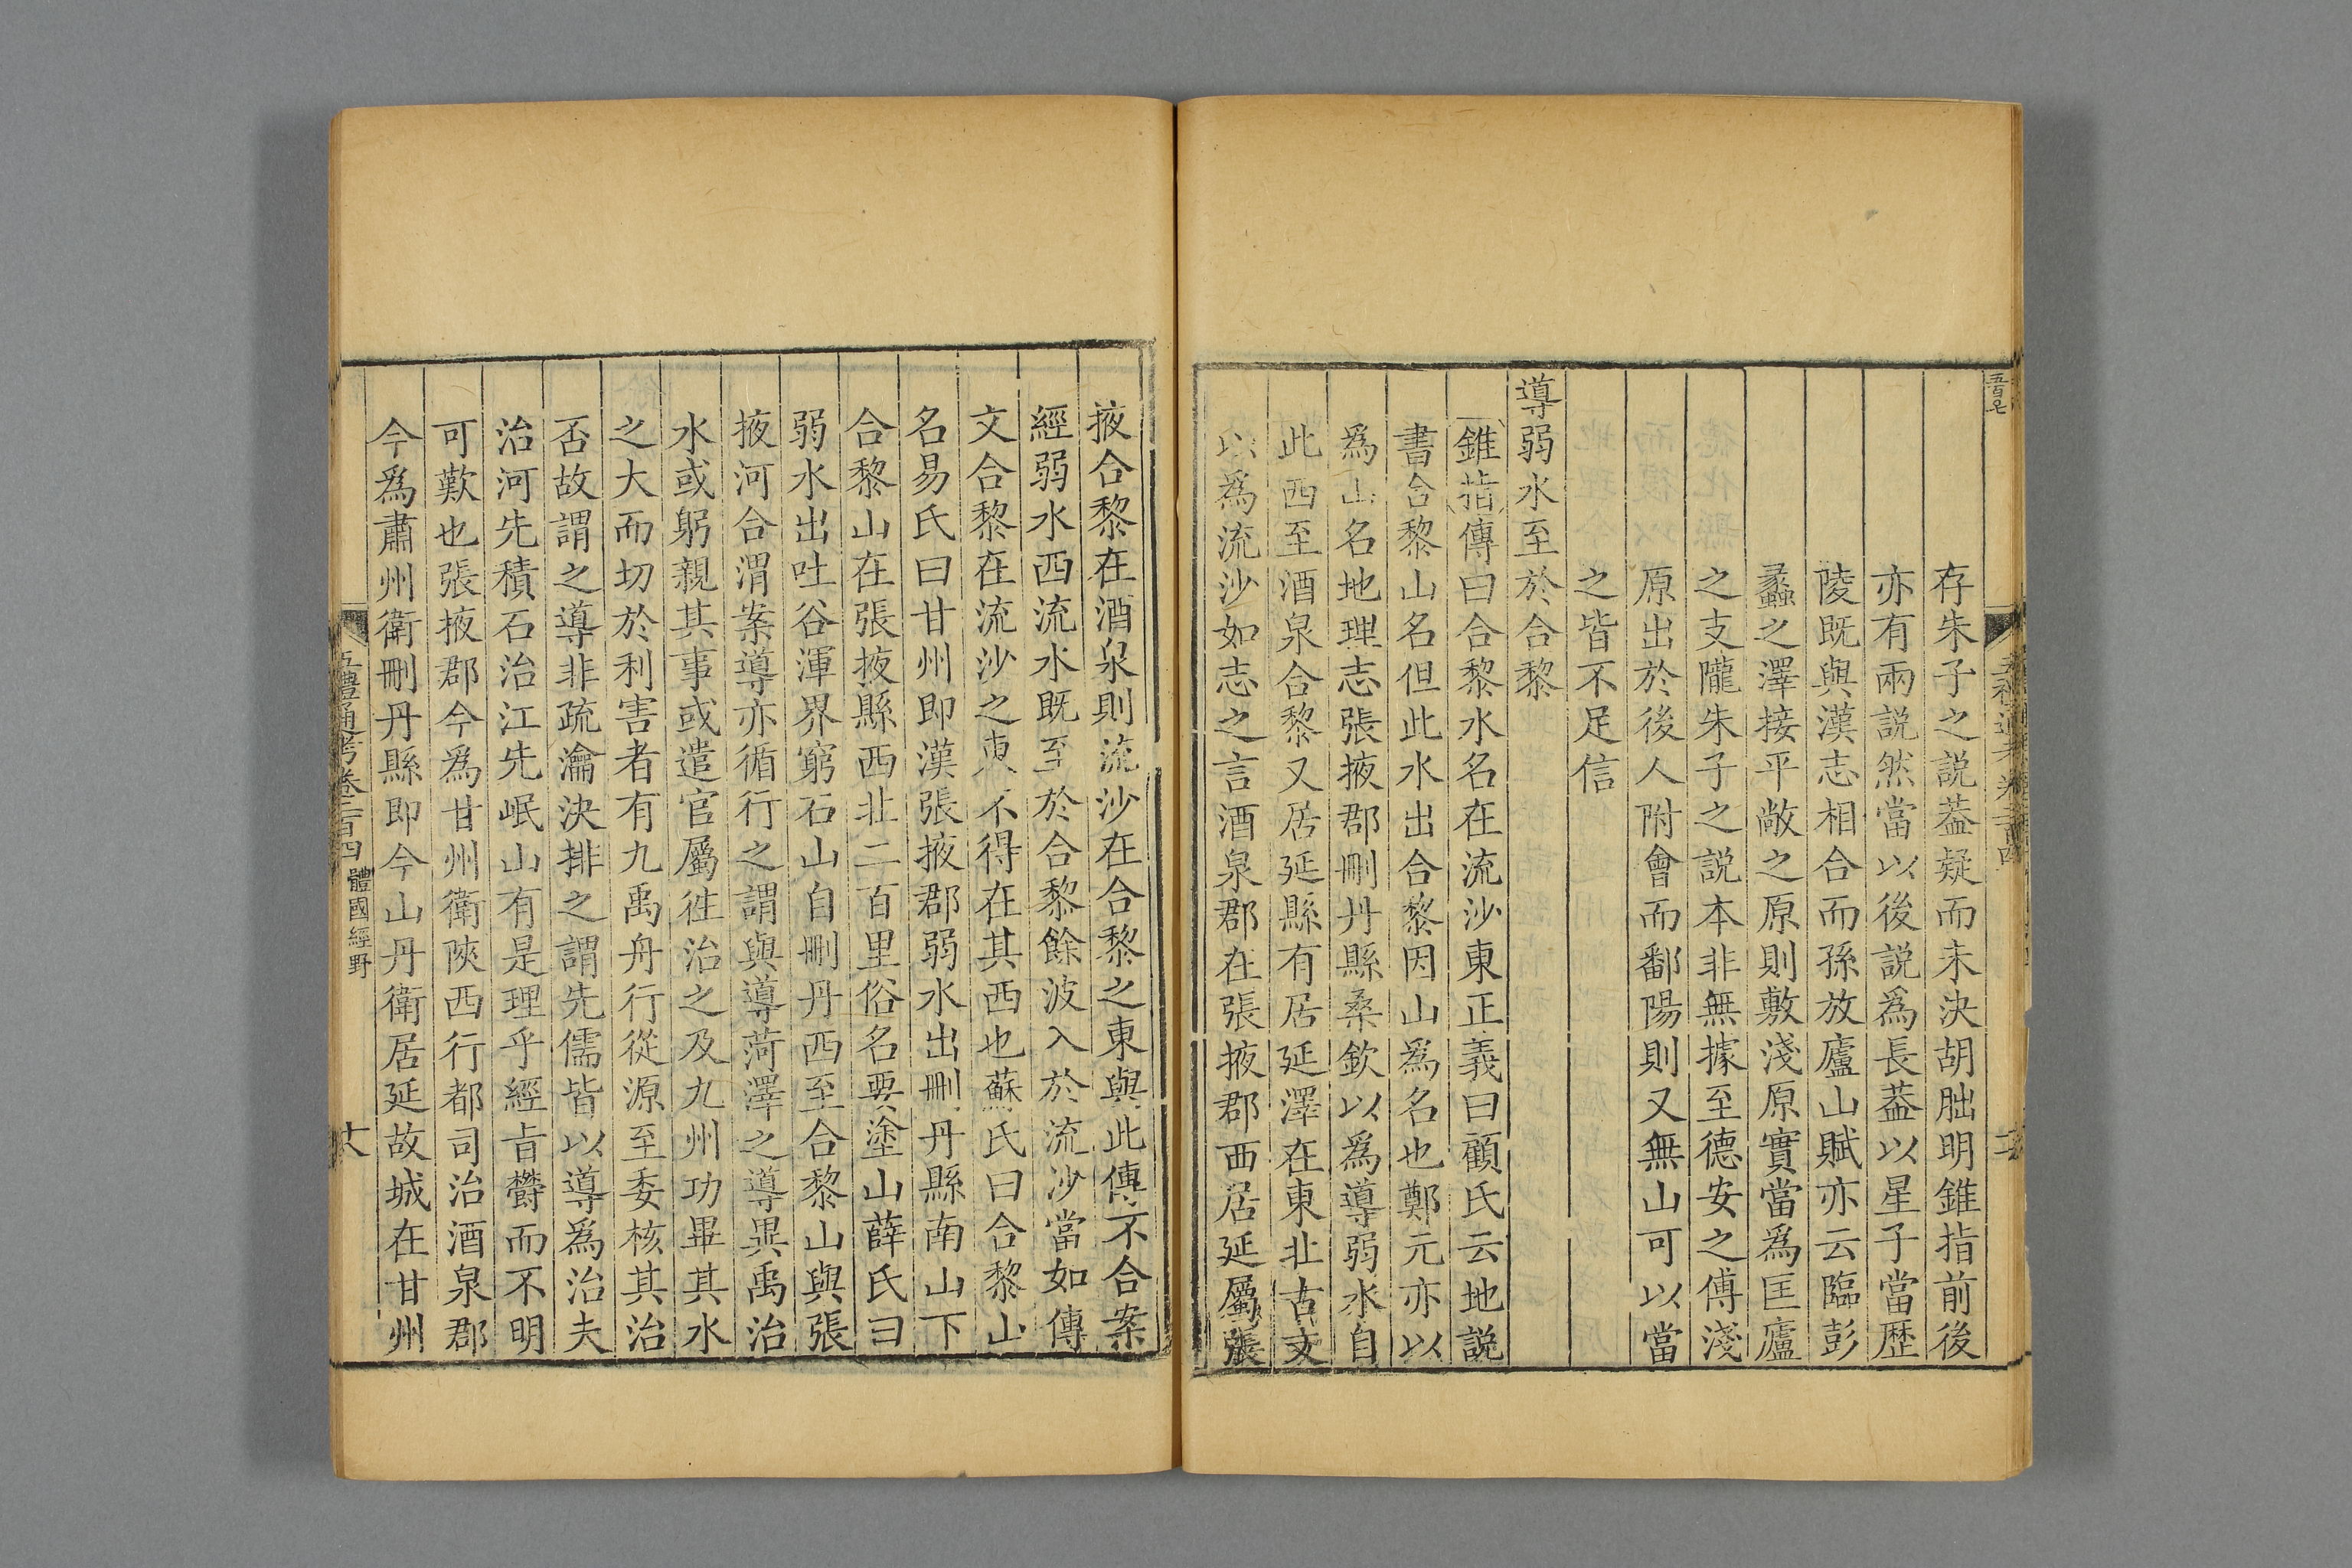 存朱子之説葢疑而未決胡朏明錐指前後
亦有兩説然當以後説爲長葢以星子當歴
陵既與漢志相合而孫放廬山賦亦云臨彭
蠡之澤接平敞之原則敷淺原實當爲匡廬
之支隴朱子之説本非無據至德安之傅淺
原出於後人附會而鄱陽則又無山可以當
之皆不足信
導弱水至於合黎
錐指傳曰合黎水名在流沙東正義曰顧氏云地説
書合黎山名但此水出合黎因山爲名也鄭元亦以
爲山名地理志張掖郡刪丹縣桑欽以爲導弱水自
此西至酒泉合黎又居延縣有居延澤在東北古文
以爲流沙如志之言酒泉郡在張掖郡西居延屬張
掖合黎在酒泉則流沙在合黎之東與此傳不合案
經弱水西流水既至於合黎餘波入於流沙當如傳
文合黎在流沙之東不得在其西也蘇氏曰合黎山
名易氏曰甘州即漢張掖郡弱水出刪丹縣南山下
合黎山在張掖縣西北二百里俗名要塗山薛氏曰
弱水出吐谷渾界窮石山自刪丹西至合黎山與張
掖河合渭案導亦循行之謂與導菏澤之導異禹治
水或躬親其事或遣官屬徃治之及九州功畢其水
之大而切於利害者有九禹舟行從源至委核其治
否故謂之導非疏瀹決排之謂先儒皆以導爲治夫
治河先積石治江先岷山有是理乎經旨欝而不明
可歎也張掖郡今爲甘州衛陝西行都司治酒泉郡
今爲肅州衛刪丹縣即今山丹衛居延故城在甘州
五禮通考卷二百四 體國經野